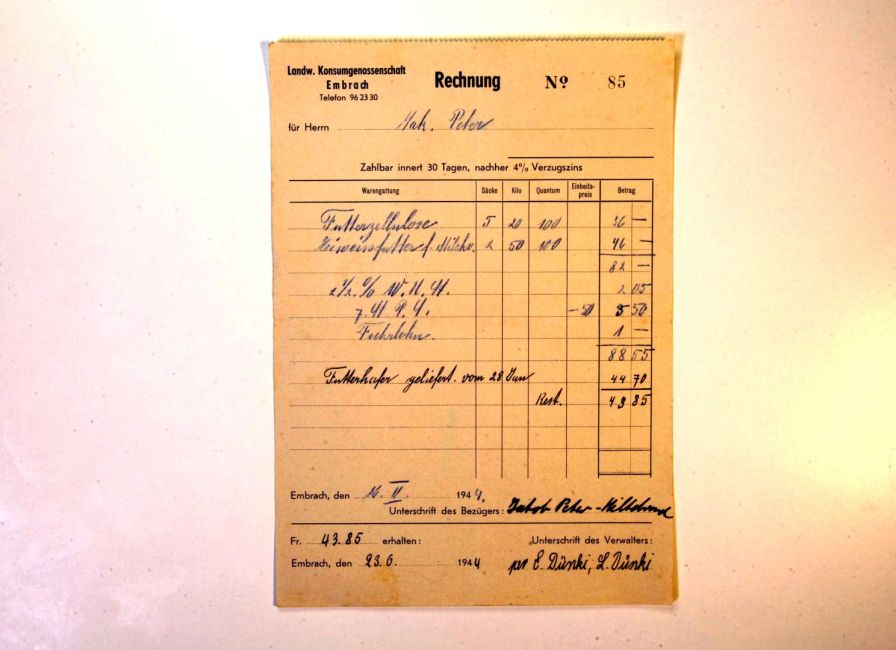 Landw. Konsumgenossenschaft
Embrach
Telefon 96 23 30
Rechnung
Nº 85
für Herrn Jak. Peter
Zahlbar innert 30 Tagen, nachher 4% Verzugszins
Warengattung Säcke Kilo Quantum Einheits-preis Betrag
Futterzellulose 5 20 100 36 —
Eiweissfutter f. Milchv. 2 50 100 46 —
82 —
2½ % W. U. St. 2 05
7 — 50 3 50
Fuhrlohn. 1 —
88 55
Futterhafer geliefert. vom 28 Jan 44 70
Rest. 43 85
Embrach, den 16. II. 1944.
Unterschrift des Bezügers: Jakob Peter-
Fr. 43.85 erhalten: Unterschrift des Verwalters:
Embrach, den 23.6. 1944 pr E. Dünki, L. Dünki